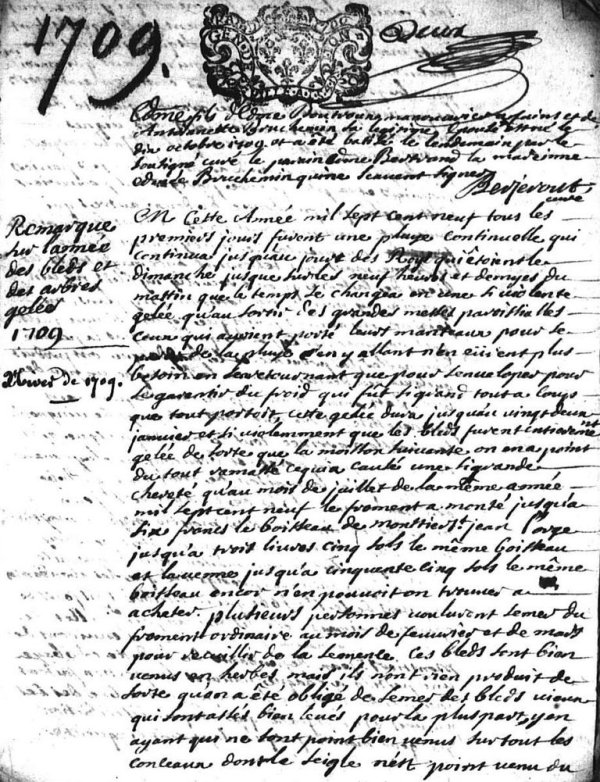 1709.
Deux
GEN. DE
Edmé fils d'Edme manouvrier et de
Antoinette Bruchemin sa legitime Epouse est né le
dix octobre 1709 et a été batisé le lendemain par le
soussigné curé le parrain Edme Bertrand la marainne
Edmée Bruchemin qui ne scavent signer
curé
Remarque
sur l'année
des bleds et
des arbres
gelée
1709
Hiver de 1709.
En Cette Année mil sept cent neuf tous les
premiers jours furent une pluye continuelle qui
continua jusqu'au jour des Roys qui étoient le
dimanche jusque sur les neuf heures et demyes du
mattin que le temps se changea en une si violente
gelée qu'au sortir des grandes messes paroissialles
ceux qui avoient porté leurs manteaux pour se
de la pluye en y allant n'en eürent plus
besoin en s'en retournant que pour s'enveloper pour
se garentir du froid qui fut si grand tout a coup
que tout portoit cette gelée dura jusqu'au vingt deux
janvier et si violemment que les bleds furent entierement
gelée de sorte que la moisson suivante on en a point
du tout ramassé ce qui a causé une si grande
chereté qu'au mois de juillet de la même année
mil sept cent neuf le froment a monté jusqu'a
six francs le boisseau de monstier st jean l'orge
jusqu'a trois livres cinq sols le même boisseau
et l'avenne jusqu'a cinquente cinq sols le même
boisseau encor n'en pouvoit on trouver a
acheter. plusieurs personnes voulurent semer du
froment ordinaire au mois de feuvrier et de mars
pour recuillir de la semence Ces bleds sont bien
venus en herbes mais ils n'ont rien produit de
sorte qu'on a été obligé de semer des bleds vieux
qui sont assés bien levés pour la pluspart, y en
ayant qui ne sont point bien venus sur tout les
conceaux dont le seigle n'est point venu du